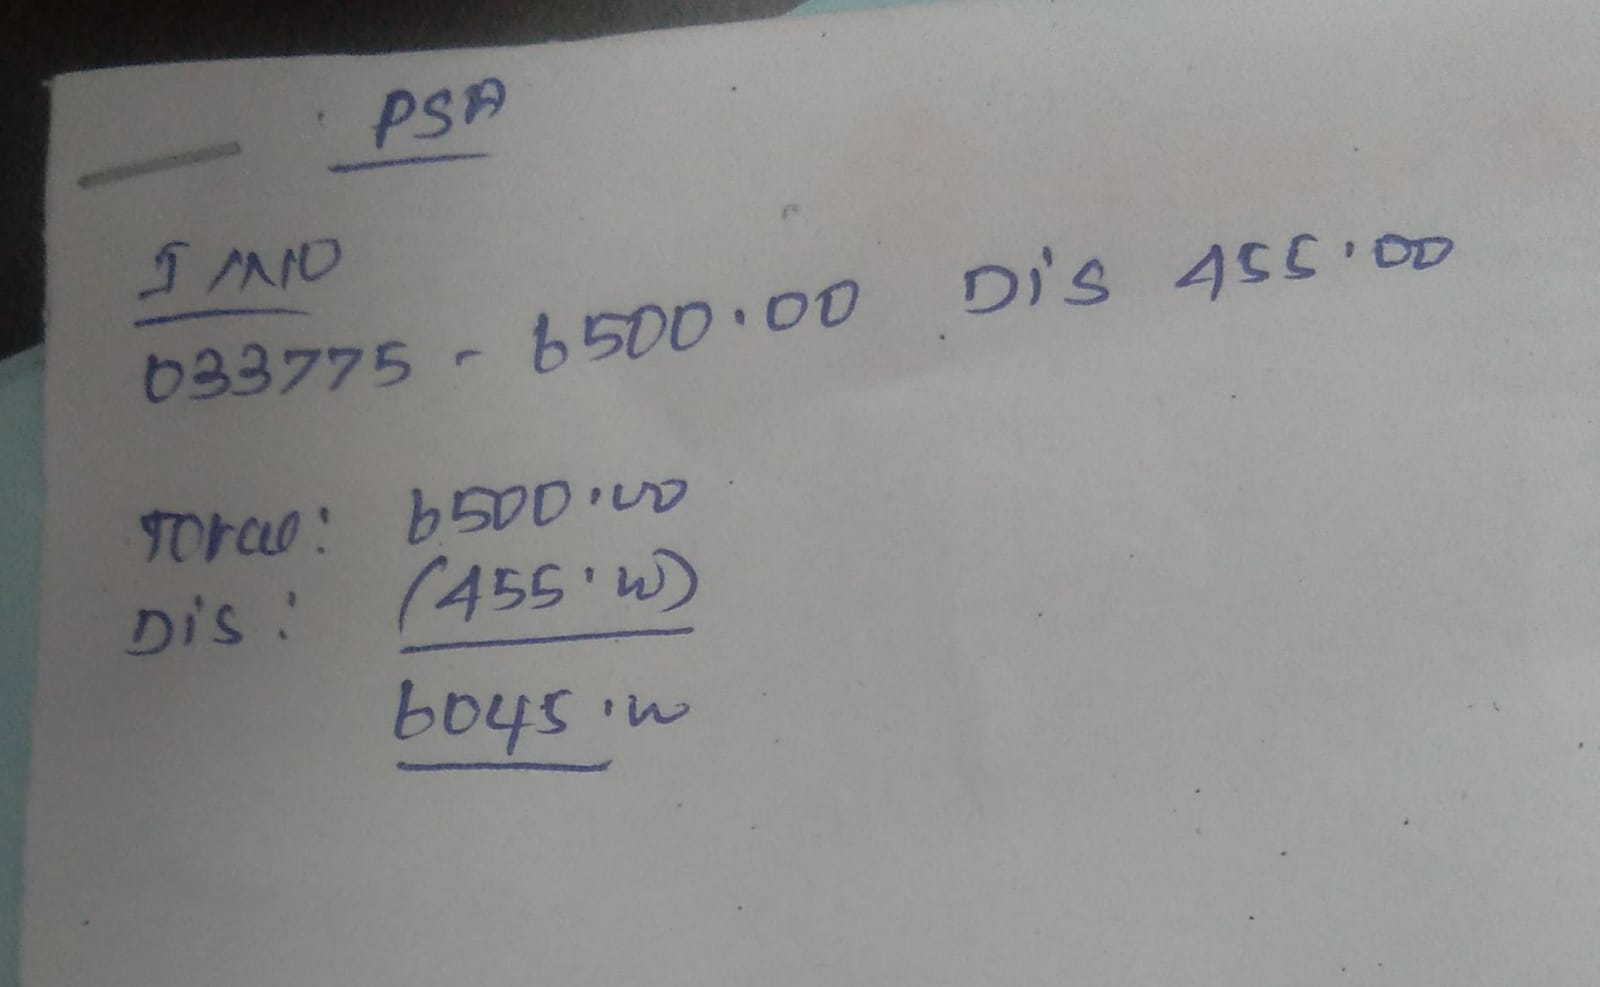 PSA
INNO
033775 - 6500.00 Dis 455.00
Total: 6500.00
Dis: (455.00)
6045.00